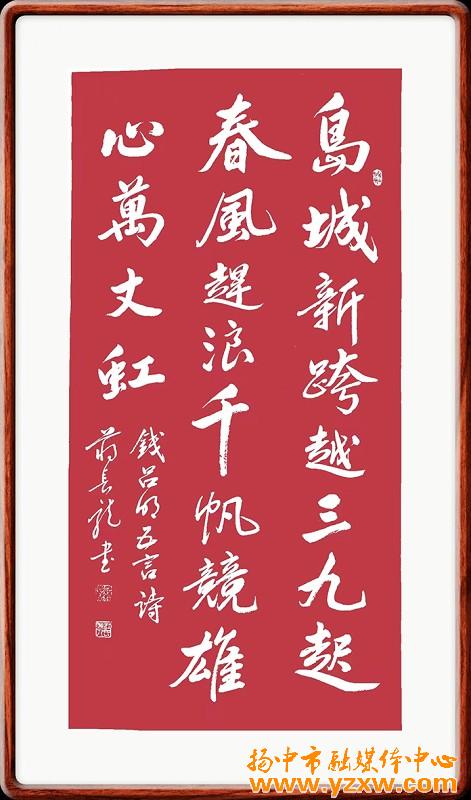 島城新跨越三九起
春風趕浪千帆競雄
心萬丈虹
錢呂明五言詩
蔣長龍書
扬中市融媒体中心
www.yzxw.com